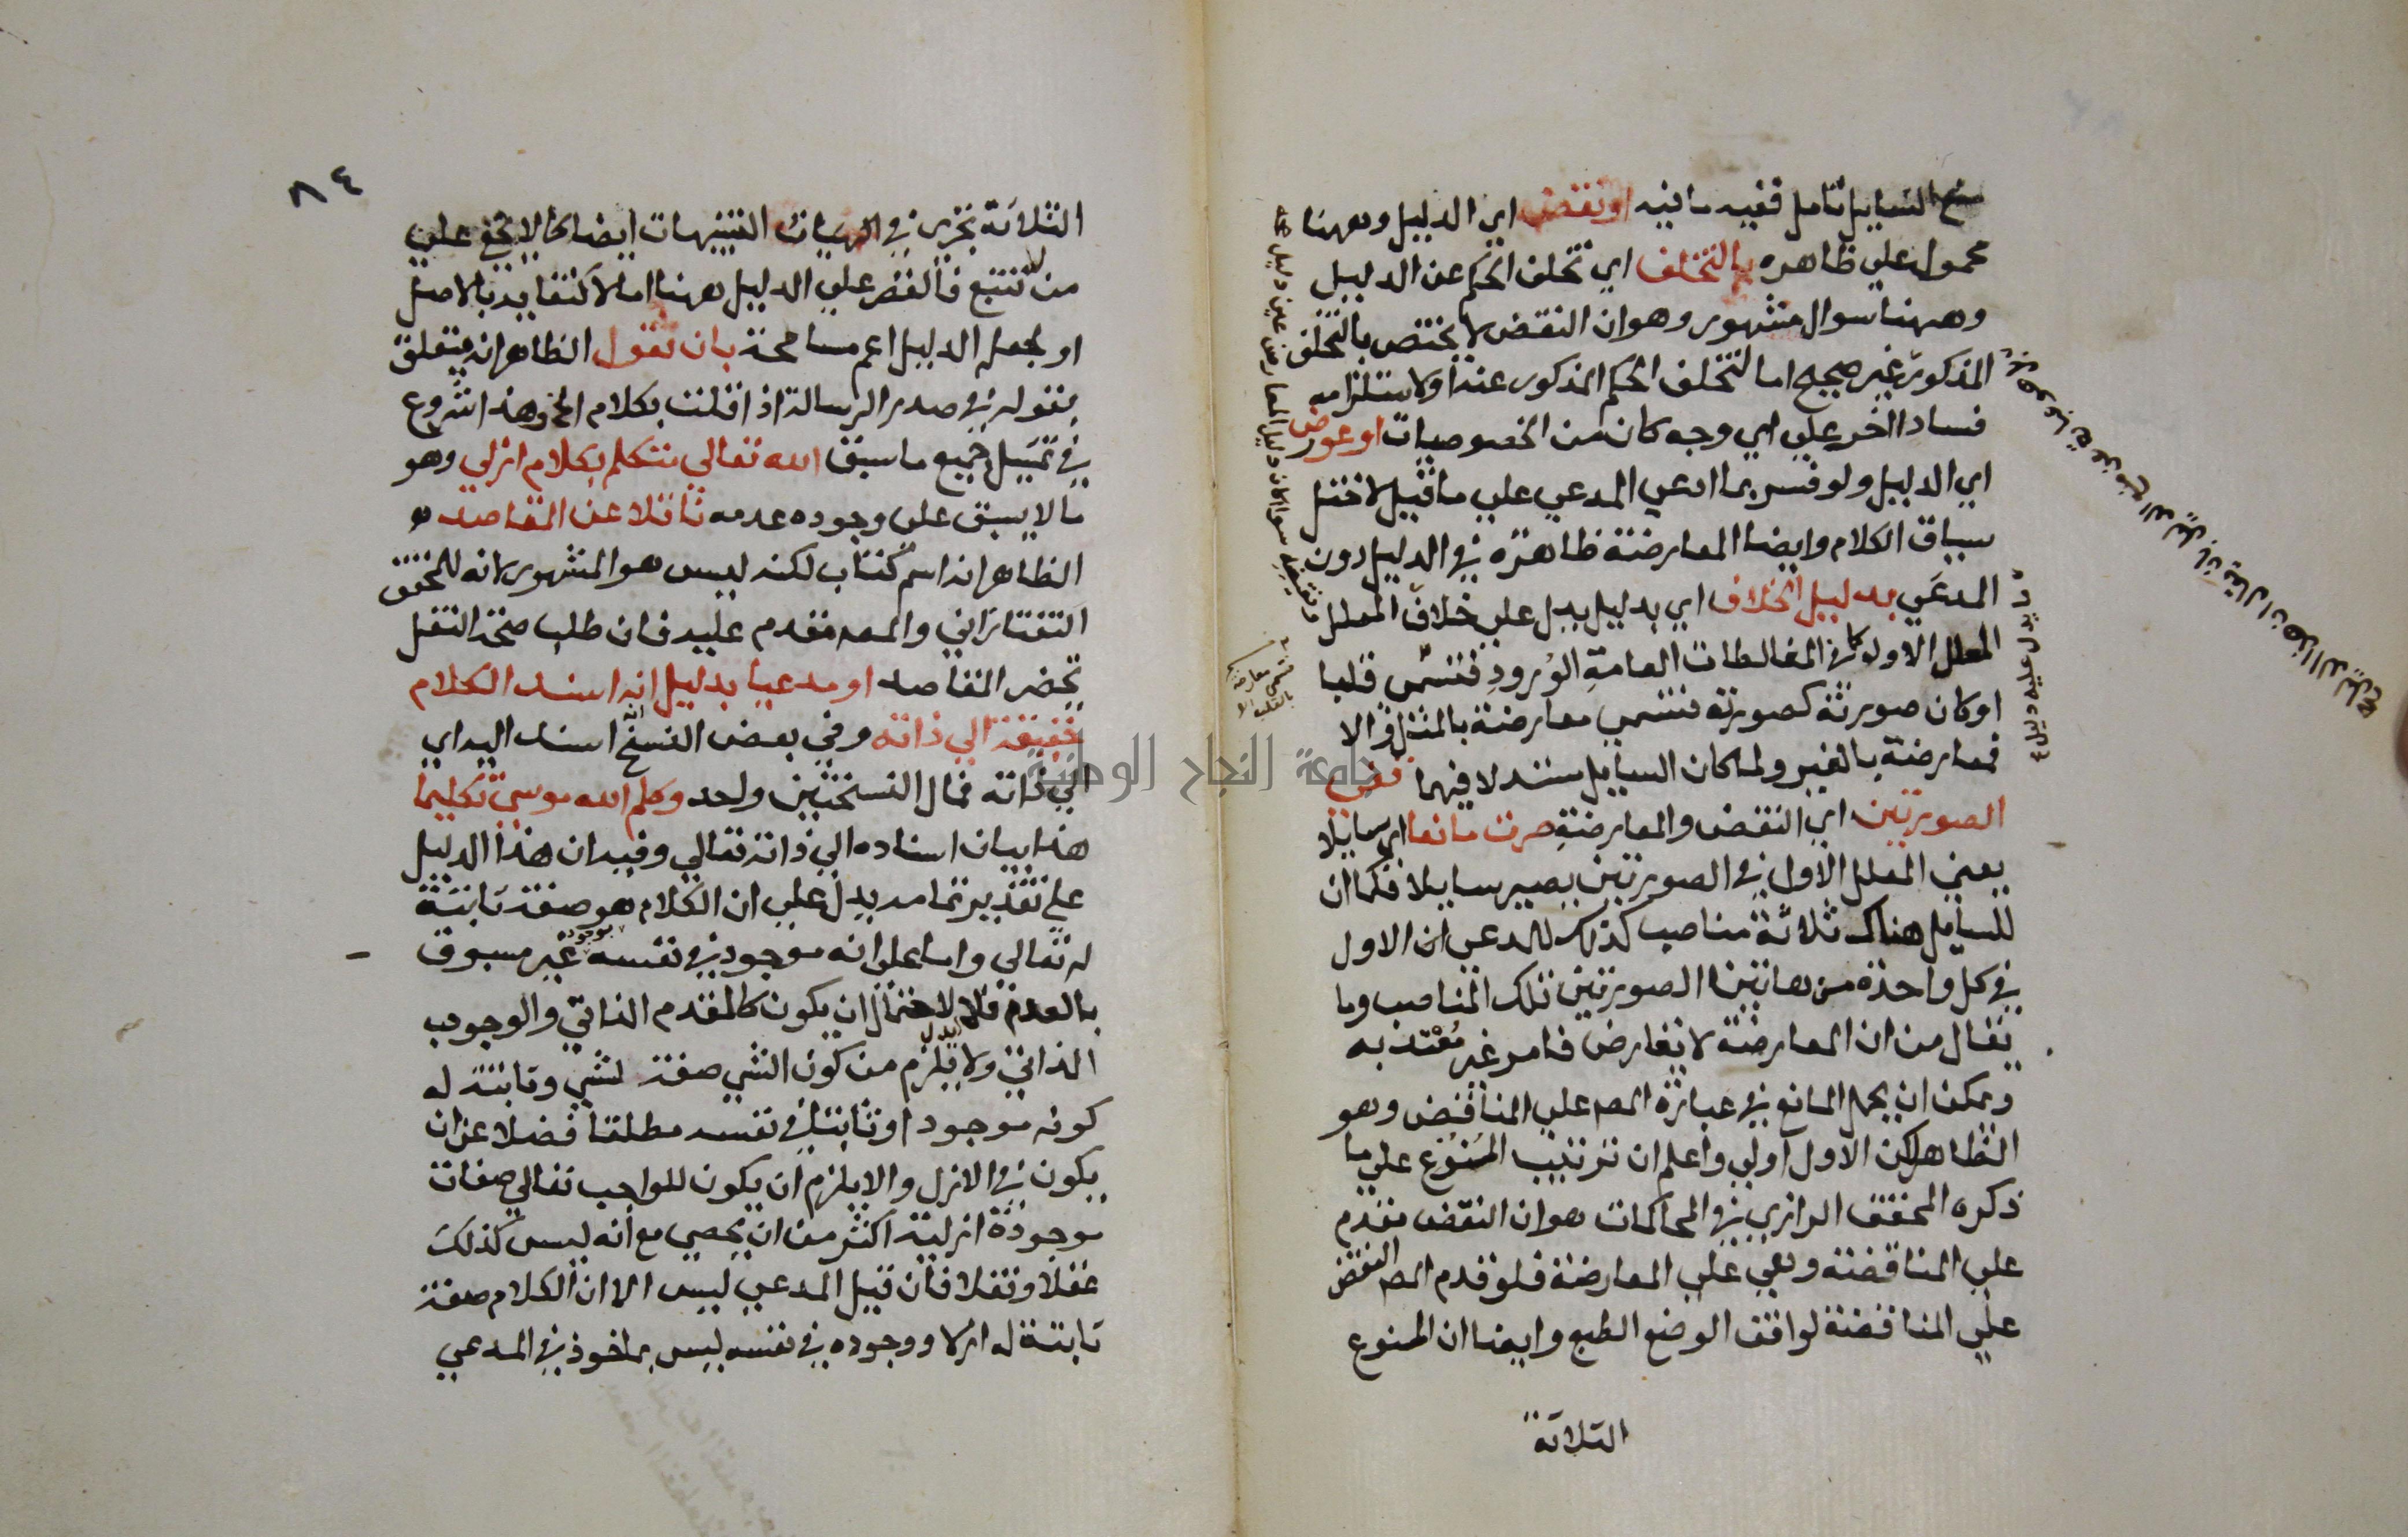 منع السايل تامل ففيه ما فيه او نقض اي الدليل وههنا
محمول علي ظاهره بالتخلف اي تخلف الحكم عن الدليل
وههنا سوال مشهور وهو ان النقض لا يختص بالتخلف
المذكور غير صحيح اما لتخلف الحكم المذكور عنه او لاستلزامه
فسادا اخر علي اي وجه كان من الخصوصيات او عورض
اي الدليل ولو فسر بما ادعي المدعي علي ما قيل لاختل
سياق الكلام وايضا المعارضة ظاهرة في الدليل دون
المدعي بدليل الخلاف اي بدليل يدل علي خلاف المعلل
المعلل الاول كما في المغالطات العامة الورود فتسمي قلبا
او كان صورته كصورته فتسمي معارضة بالمثل والا
فمعارضة بالغير ولما كان السايل مستدلا فيهما ففي
الصورتين اي النقض والمعارضة صرت مانعا اي سايلا
يعني المعلل الاول في الصورتين يصير سايلا فكما ان
للسايل هناك ثلاثة مناصب كذلك للمدعي الاول
في كل واحدة من هاتين الصورتين تلك المناصب وما
يقال من ان المعارضة لا تعارض فامر غير معتد به
ويمكن ان يحمل المانع في عبارة المص علي المناقض وهو
الظاهر لكن الاول اولي واعلم ان ترتيب المنوع علي ما
ذكره المحقق الرازي في المحاكمات هو ان النقض مقدم
علي المناقضة وهي علي المعارضة فلو قدم المص النقض
علي المناقضة لوافق الوضع الطبع وايضا ان المنوع
الثلاثة
فتسمي معارضة
بالقلب
جامعة النجاح الوطنية
٨٤
الثلاثة تجري في التنبيهات ايضا كما لا يخفي علي
من تتبع فالقصر علي الدليل ههنا اما لاكتفايه بالاصل
او لجعل الدليل اعم مسامحة بان تقول الظاهر انه متعلق
بقوله في صدر الرسالة اذا قلت بكلام الخ وهذا شروع
في تمثيل جميع ما سبق الله تعالي متكلم بكلام ازلي وهو
ما لا يسبق علي وجوده عدمه ناقلا عن المقاصد
الظاهر انه اسم كتاب لكنه ليس هو المشهور لانه للمحقق
التفتازاني والمص مقدم عليه فان طلب صحة النقل
تحضر المقاصد او مدعيا بدليل انه اسند الكلام
حقيقة الي ذاته وفي بعض النسخ اسند اليه اي
الي ذاته فمال النسختين واحد وكلم الله موسي تكليما
هذا بيان اسناده الي ذاته تعالي وفيه ان هذا الدليل
علي تقدير تمامه يدل علي ان الكلام هو صفة ثابتة
له تعالي واما علي انه موجود في نفسه بوجود غير مسبوق
بالعدم فلا لاحتمال ان يكون كالقدم الذاتي والوجوب
الذاتي ولا يلزم من كون الشي صفة لشي وثابتة له
كونه موجودا وثابتا في نفسه مطلقا فضلا عن ان
يكون في الازل والا يلزم ان يكون للواجب تعالي صفات
موجودة ازلية اكثر من ان يحصي مع انه ليس كذلك
عقلا ونقلا فان قيل المدعي ليس الا ان الكلام صفة
ثابتة له ازلا ووجوده في نفسه ليس بماخوذ في المدعي